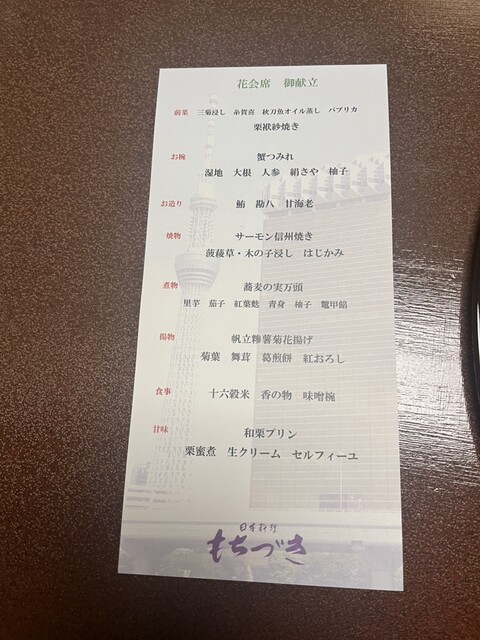 花会席　御献立
前菜　三菊浸し　糸賀喜　秋刀魚オイル蒸し　パプリカ
栗袱紗焼き
お椀　蟹つみれ
湿地　大根　人参　絹さや　柚子
お造り　鮪　勘八　甘海老
焼物　サーモン信州焼き
菠薐草・木の子浸し　はじかみ
煮物　蕎麦の実万頭
里芋　茄子　紅葉麩　青身　柚子　鼈甲餡
揚物　帆立糝薯菊花揚げ
菊葉　舞茸　葛煎餅　紅おろし
食事　十六穀米　香の物　味噌椀
甘味　和栗プリン
栗蜜煮　生クリーム　セルフィーユ
日本料理
もちづき